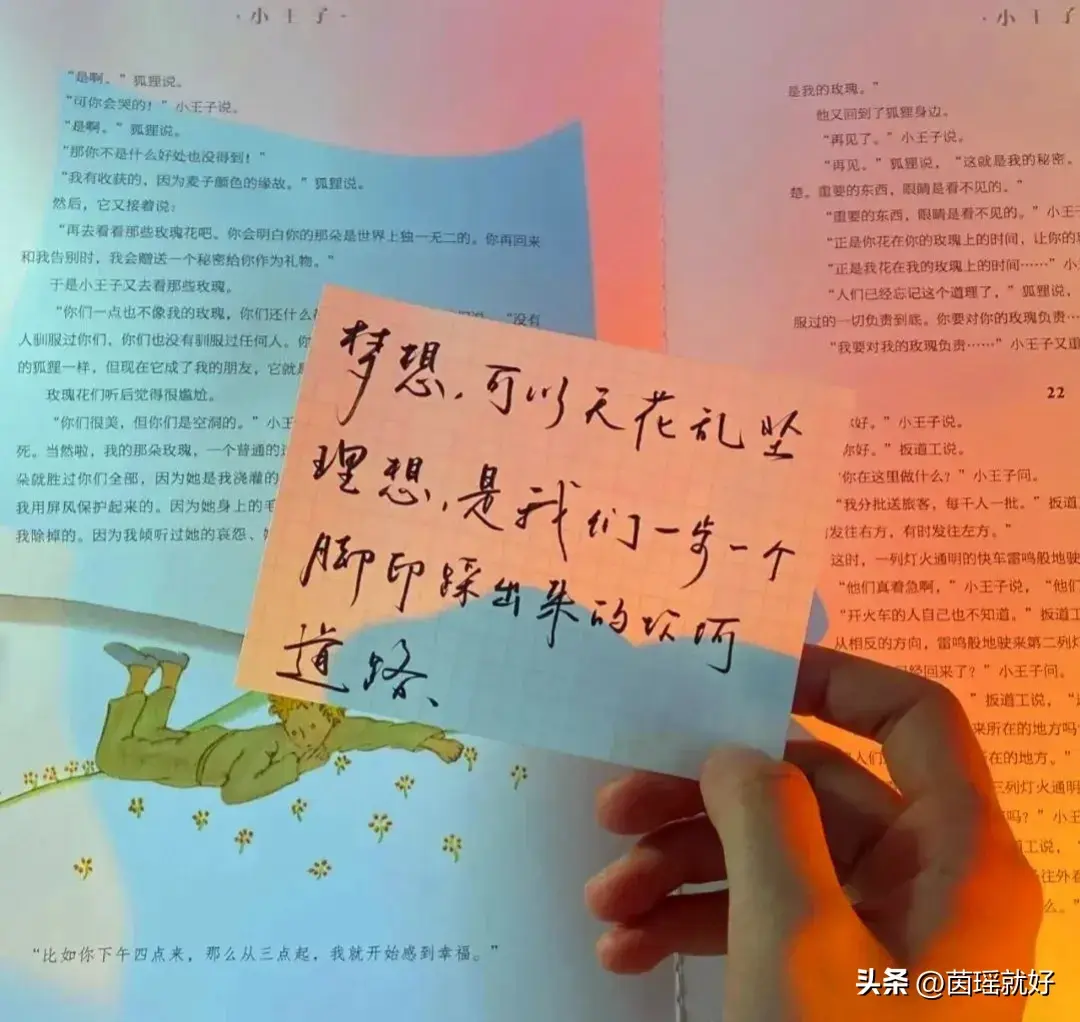 ·小王子·
“是啊。”狐狸说。
“可你会哭的！”小王子说。
“是啊。”狐狸说。
“那你不是什么好处也没得到！”
“我有收获的，因为麦子颜色的缘故。”狐狸说。
然后，它又接着说：
“再去看看那些玫瑰花吧。你会明白你的那朵是世界上独一无二的。你再回来
和我告别时，我会赠送一个秘密给你作为礼物。”
于是小王子又去看那些玫瑰。
“你们一点也不像我的玫瑰，你们还什么
“没有
人驯服过你们，你们也没有驯服过任何人。你
的狐狸一样，但现在它成了我的朋友，它就是
玫瑰花们听后觉得很尴尬。
“你们很美，但你们是空洞的。”小王
死。当然啦，我的那朵玫瑰，一个普通的
朵就胜过你们全部，因为她是我浇灌的
我用屏风保护起来的。因为她身上的毛
我除掉的。因为我倾听过她的哀怨、
“比如你下午四点来，那么从三点起，我就开始感到幸福。”
梦想，可以天花乱坠
理想，是我们一步一个
脚印踩出来的坎坷
道路、
·小王子
是我的玫瑰。”
他又回到了狐狸身边。
“再见了。”小王子说。
“再见。”狐狸说，“这就是我的秘密。
楚。重要的东西，眼睛是看不见的。”
“重要的东西，眼睛是看不见的。”小王
“正是你花在你的玫瑰上的时间，让你的
“正是我花在我的玫瑰上的时间……”小
“人们已经忘记这个道理了，”狐狸说，
服过的一切负责到底。你要对你的玫瑰负责…
“我要对我的玫瑰负责……”小王子又重
22
好。”小王子说。
你好。”扳道工说。
“你在这里做什么？”小王子问。
“我分批送旅客，每千人一批。”扳道
发往右方，有时发往左方。”
这时，一列灯火通明的快车雷鸣般地驶
“他们真着急啊，”小王子说，“他们
“开火车的人自己也不知道。”扳道工
从相反的方向，雷鸣般地驶来第二列灯
已经回来了？”小王子问。
”扳道工说，
来所在的地方吗
人们
所在的地方。”
三列灯火通明
吗？”小王
道工说，
往外看
么。”
头条 @茵瑶就好